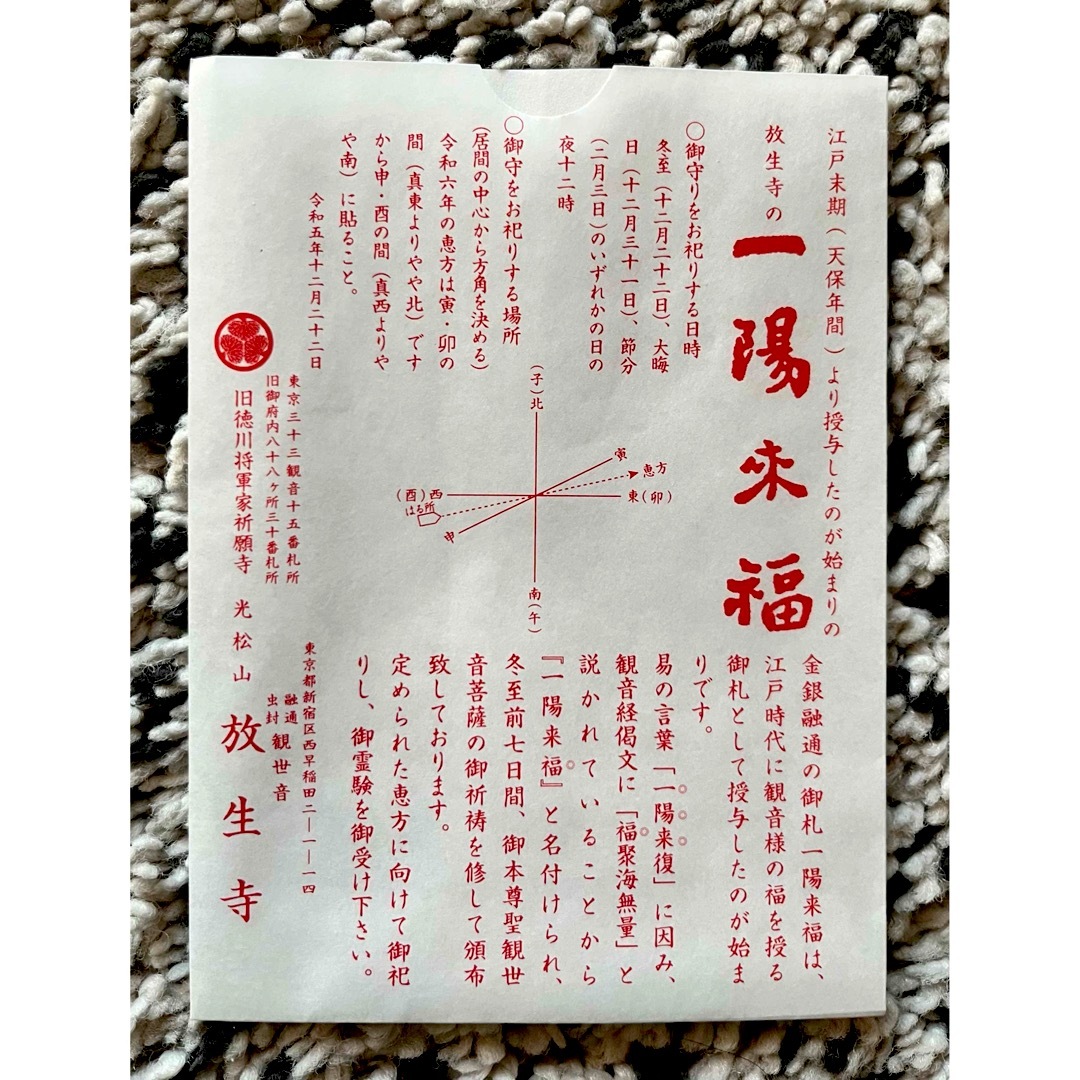 江戸末期(天保年間)より授与したのが始まりの
放生寺の
一陽来福
〇御守りをお祀りする日時
冬至(十二月二十二日)、大晦
日(十二月三十一日)、節分
(二月三日)のいずれかの日の
夜十二時
〇御守をお祀りする場所
(居間の中心から方角を決める)
令和六年の恵方は寅・卯の
間(真東よりやや北)です
から申・酉の間(真西よりや
や南)に貼ること。
令和五年十二月二十二日
(子)北
寅
恵方
東(卯)
(酉)西
はる所
申
南(午)
金銀融通の御札一陽来福は、
江戸時代に観音様の福を授る
御札として授与したのが始ま
りです。
易の言葉「一陽来復」に因み、
観音経偈文に「福聚海無量」と
説かれていることから
『一陽来福』と名付けられ、
冬至前七日間、御本尊聖観世
音菩薩の御祈祷を修して頒布
致しております。
定められた恵方に向けて御祀
りし、御霊験を御受け下さい。
東京三十三観音十五番札所
旧御府内八十八ヶ所三十番札所
旧徳川将軍家祈願寺 光松山 放生寺
東京都新宿区西早稲田二―一―一四
融通
虫封
観世音